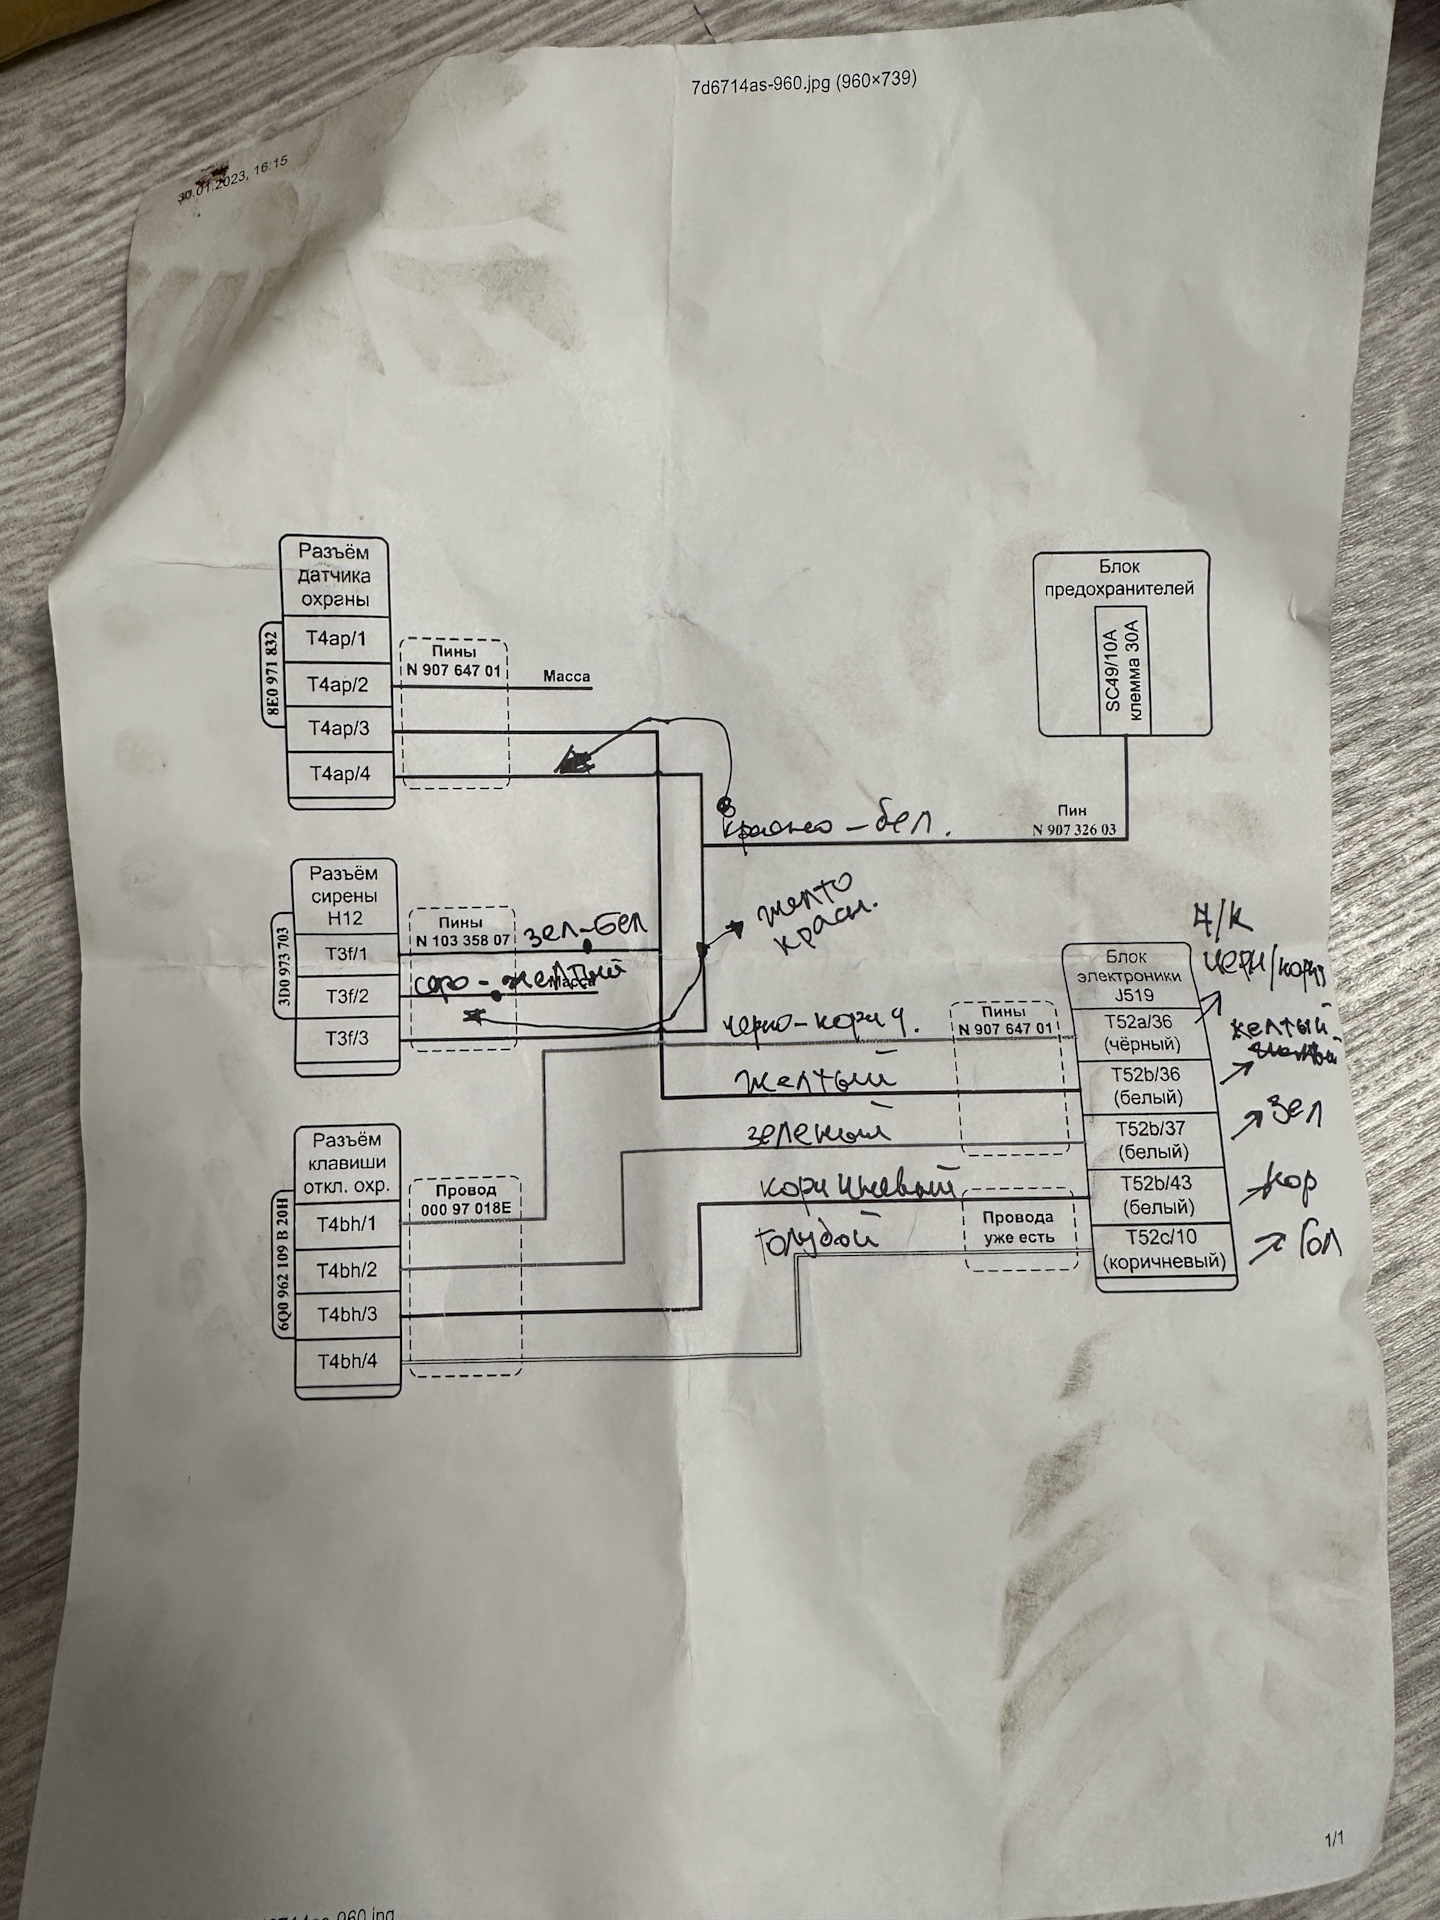 7d6714as-960.jpg (960×739)
30.01.2023, 16:15
Разъём
датчика
охраны
8E0 971 832
T4ap/1
T4ap/2
T4ap/3
T4ap/4
Пины
N 907 647 01
Масса
Блок
предохранителей
SC49/10A
клемма 30А
Пин
N 907 326 03
красно-бел.
Разъём
сирены
H12
3D0 973 703
T3f/1
T3f/2
T3f/3
Пины
N 103 358 07
зел-бел
серо-желтый
Масса
желто
красн.
Ч/К
черн/корич
Блок
электроники
J519
T52a/36
(чёрный)
T52b/36
(белый)
T52b/37
(белый)
T52b/43
(белый)
T52c/10
(коричневый)
желтый
Зел
Кор
Гол
Пины
N 907 647 01
черно-корич.
желтый
зеленый
коричневый
голубой
Провода
уже есть
Разъём
клавиши
откл. охр.
6Q0 962 109 B 20H
T4bh/1
T4bh/2
T4bh/3
T4bh/4
Провод
000 97 018E
1/1